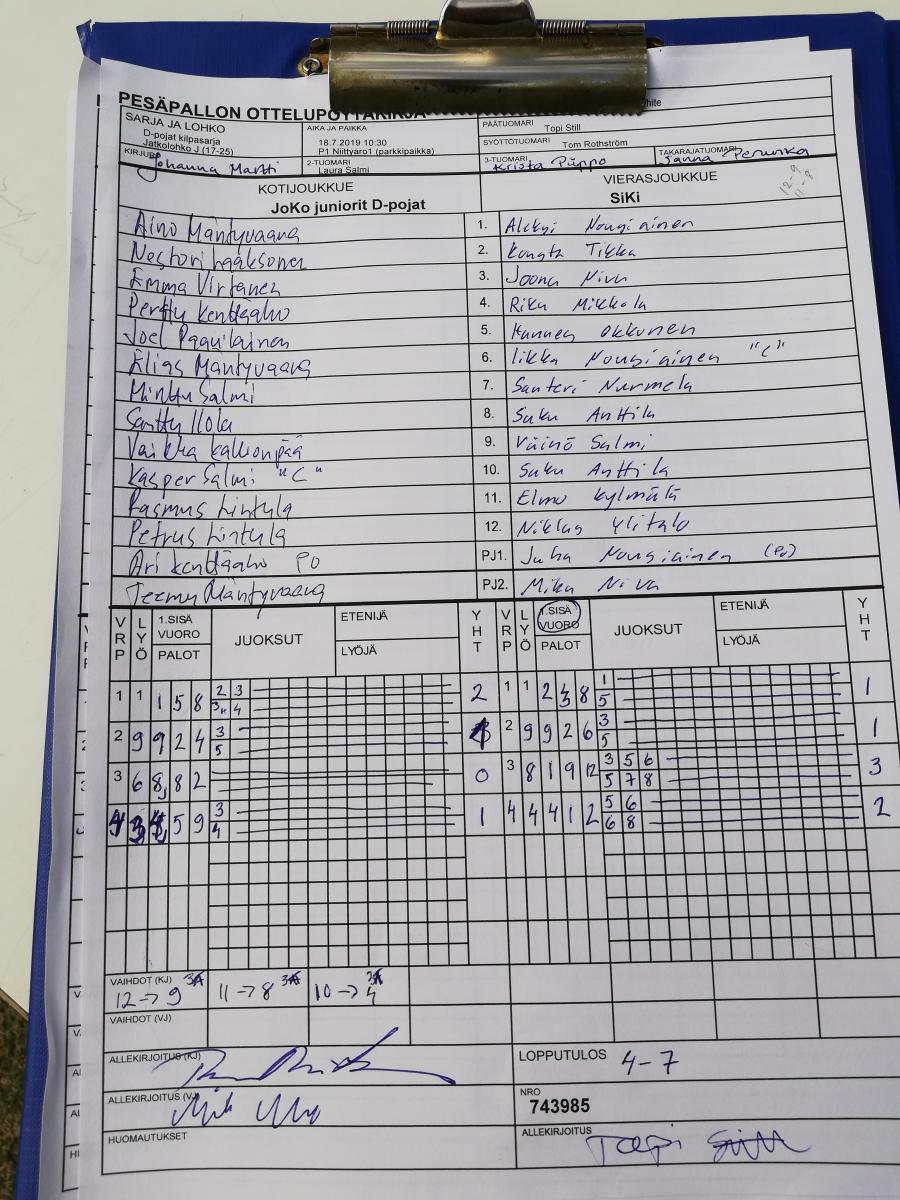 PESÄPALLON OTTELUPÖYTÄKIRJA
SARJA JA LOHKO
D-pojat kilpasarja
Jatkolohko J (17-25)
AIKA JA PAIKKA
18.7.2019 10:30
P1 Niittyaro1 (parkkipaikka)
PÄÄTUOMARI Topi Still
SYÖTTÖTUOMARI Tom Rothström
KIRJURI Johanna Martti
2-TUOMARI Laura Salmi
3-TUOMARI Krista Piippo
TAKARAJATUOMARI Sanna Perunka
KOTIJOUKKUE
JoKo juniorit D-pojat
VIERASJOUKKUE
SiKi
12-9
11-8
Aino Mäntyvaara 1. Aleksi Nousiainen
Nestori Laaksonen 2. Tikka
Emma Virtanen 3. Joona Niva
Perttu Kenttäaho 4. Riku Mikkola
Joel Paquilainen 5. Okkonen
Elias Mäntyvaara 6. Iikka Nousiainen "C"
Minttu Salmi 7. Santeri Nurmela
Santtu Ilola 8. Saku Anttila
Kallionpää 9. Väinö Salmi
Kasper Salmi "C" 10. Saku Anttila
Rasmus Lintula 11. Elmo Kylmälä
Petrus Lintula 12. Niklas Ylitalo
Ari Kenttäaho PJ1. Juha Nousiainen
Teemu Mäntyvaara PJ2. Mika Niva
VRP LYÖ 1.SISÄ VUORO PALOT JUOKSUT ETENIJÄ LYÖJÄ YHT VRP LYÖ 1.SISÄ VUORO PALOT JUOKSUT ETENIJÄ LYÖJÄ YHT
1 1 1 5 8 2 3 2 1 1 2 3 8 1 5 1
2 9 9 2 4 3 5 2 9 9 2 6 3 5 1
3 6 8 8 2 0 3 8 1 9 12 3 5 6 5 7 8 3
4 3 5 9 3 4 1 4 4 4 1 2 5 6 6 8 2
VAIHDOT (KJ)
12 → 9 11 → 8 10 → 4
VAIHDOT (VJ)
ALLEKIRJOITUS (KJ)
LOPPUTULOS 4-7
ALLEKIRJOITUS (VJ)
NRO
743985
HUOMAUTUKSET
ALLEKIRJOITUS Topi Still